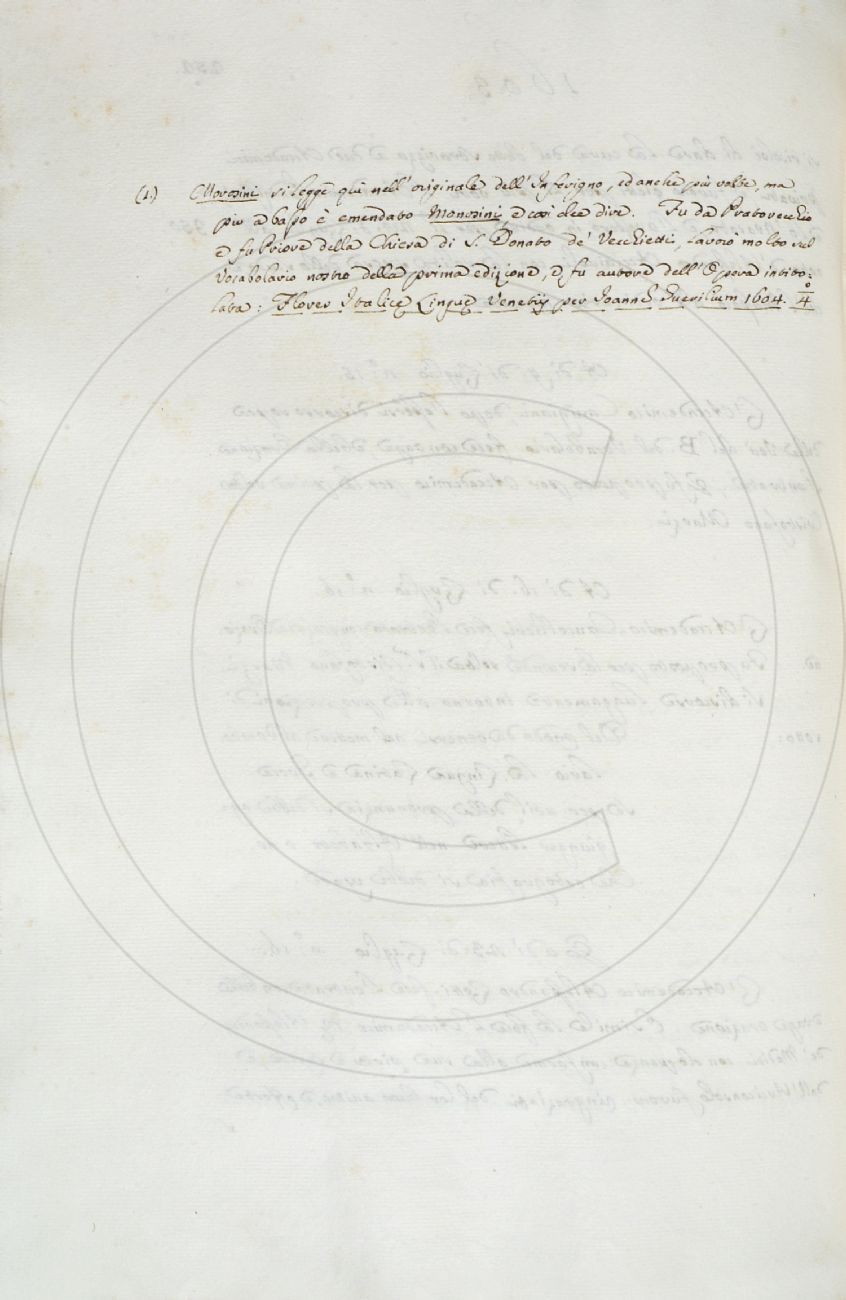 (1.) Morosini si legge quì nell' originale dell' Inferigno, ed anche più volte, ma
più a basso è emendato Monosini, e così dee dire. Fu da Pratovecchio
e fu Priore della Chiesa di S. Donato de' Vecchietti, lavorò molto sul
Vocabolario nostro della prima edizione, e fu autore dell' Opera intito:
lata: Flores Italicę Linguę Venetijs per Joannē Guerilium 1604. 4º